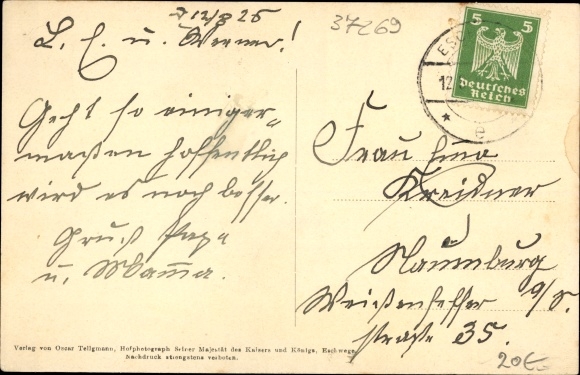 d 12/8 25
L. E. u. Werner!
Geht so einiger-
maßen hoffentlich
wird es noch besser.
Gruß Papa
u. Mamma.
37269
5 5
Deutsches
Reich
ES
12.
e
Frau
Kreidner
Naumburg
Weißenfelser a/S.
straße 35.
20E
Verlag von Oscar Tellgmann, Hofphotograph Seiner Majestät des Kaisers und Königs, Eschwege.
Nachdruck strengstens verboten.